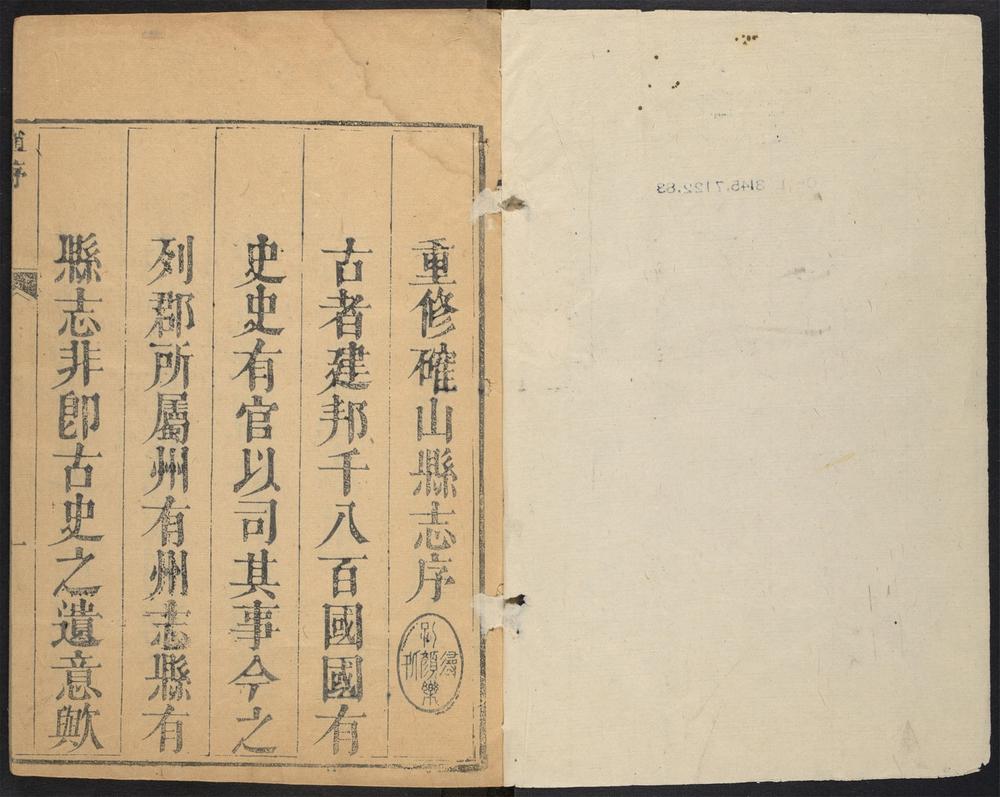 重修確山縣志序
尋孔顏樂
古者建邦千八百國國有
史史有官以司其事今之
列郡所屬州有州志縣有
縣志非卽古史之遺意歟
序
一
3145.7122.83